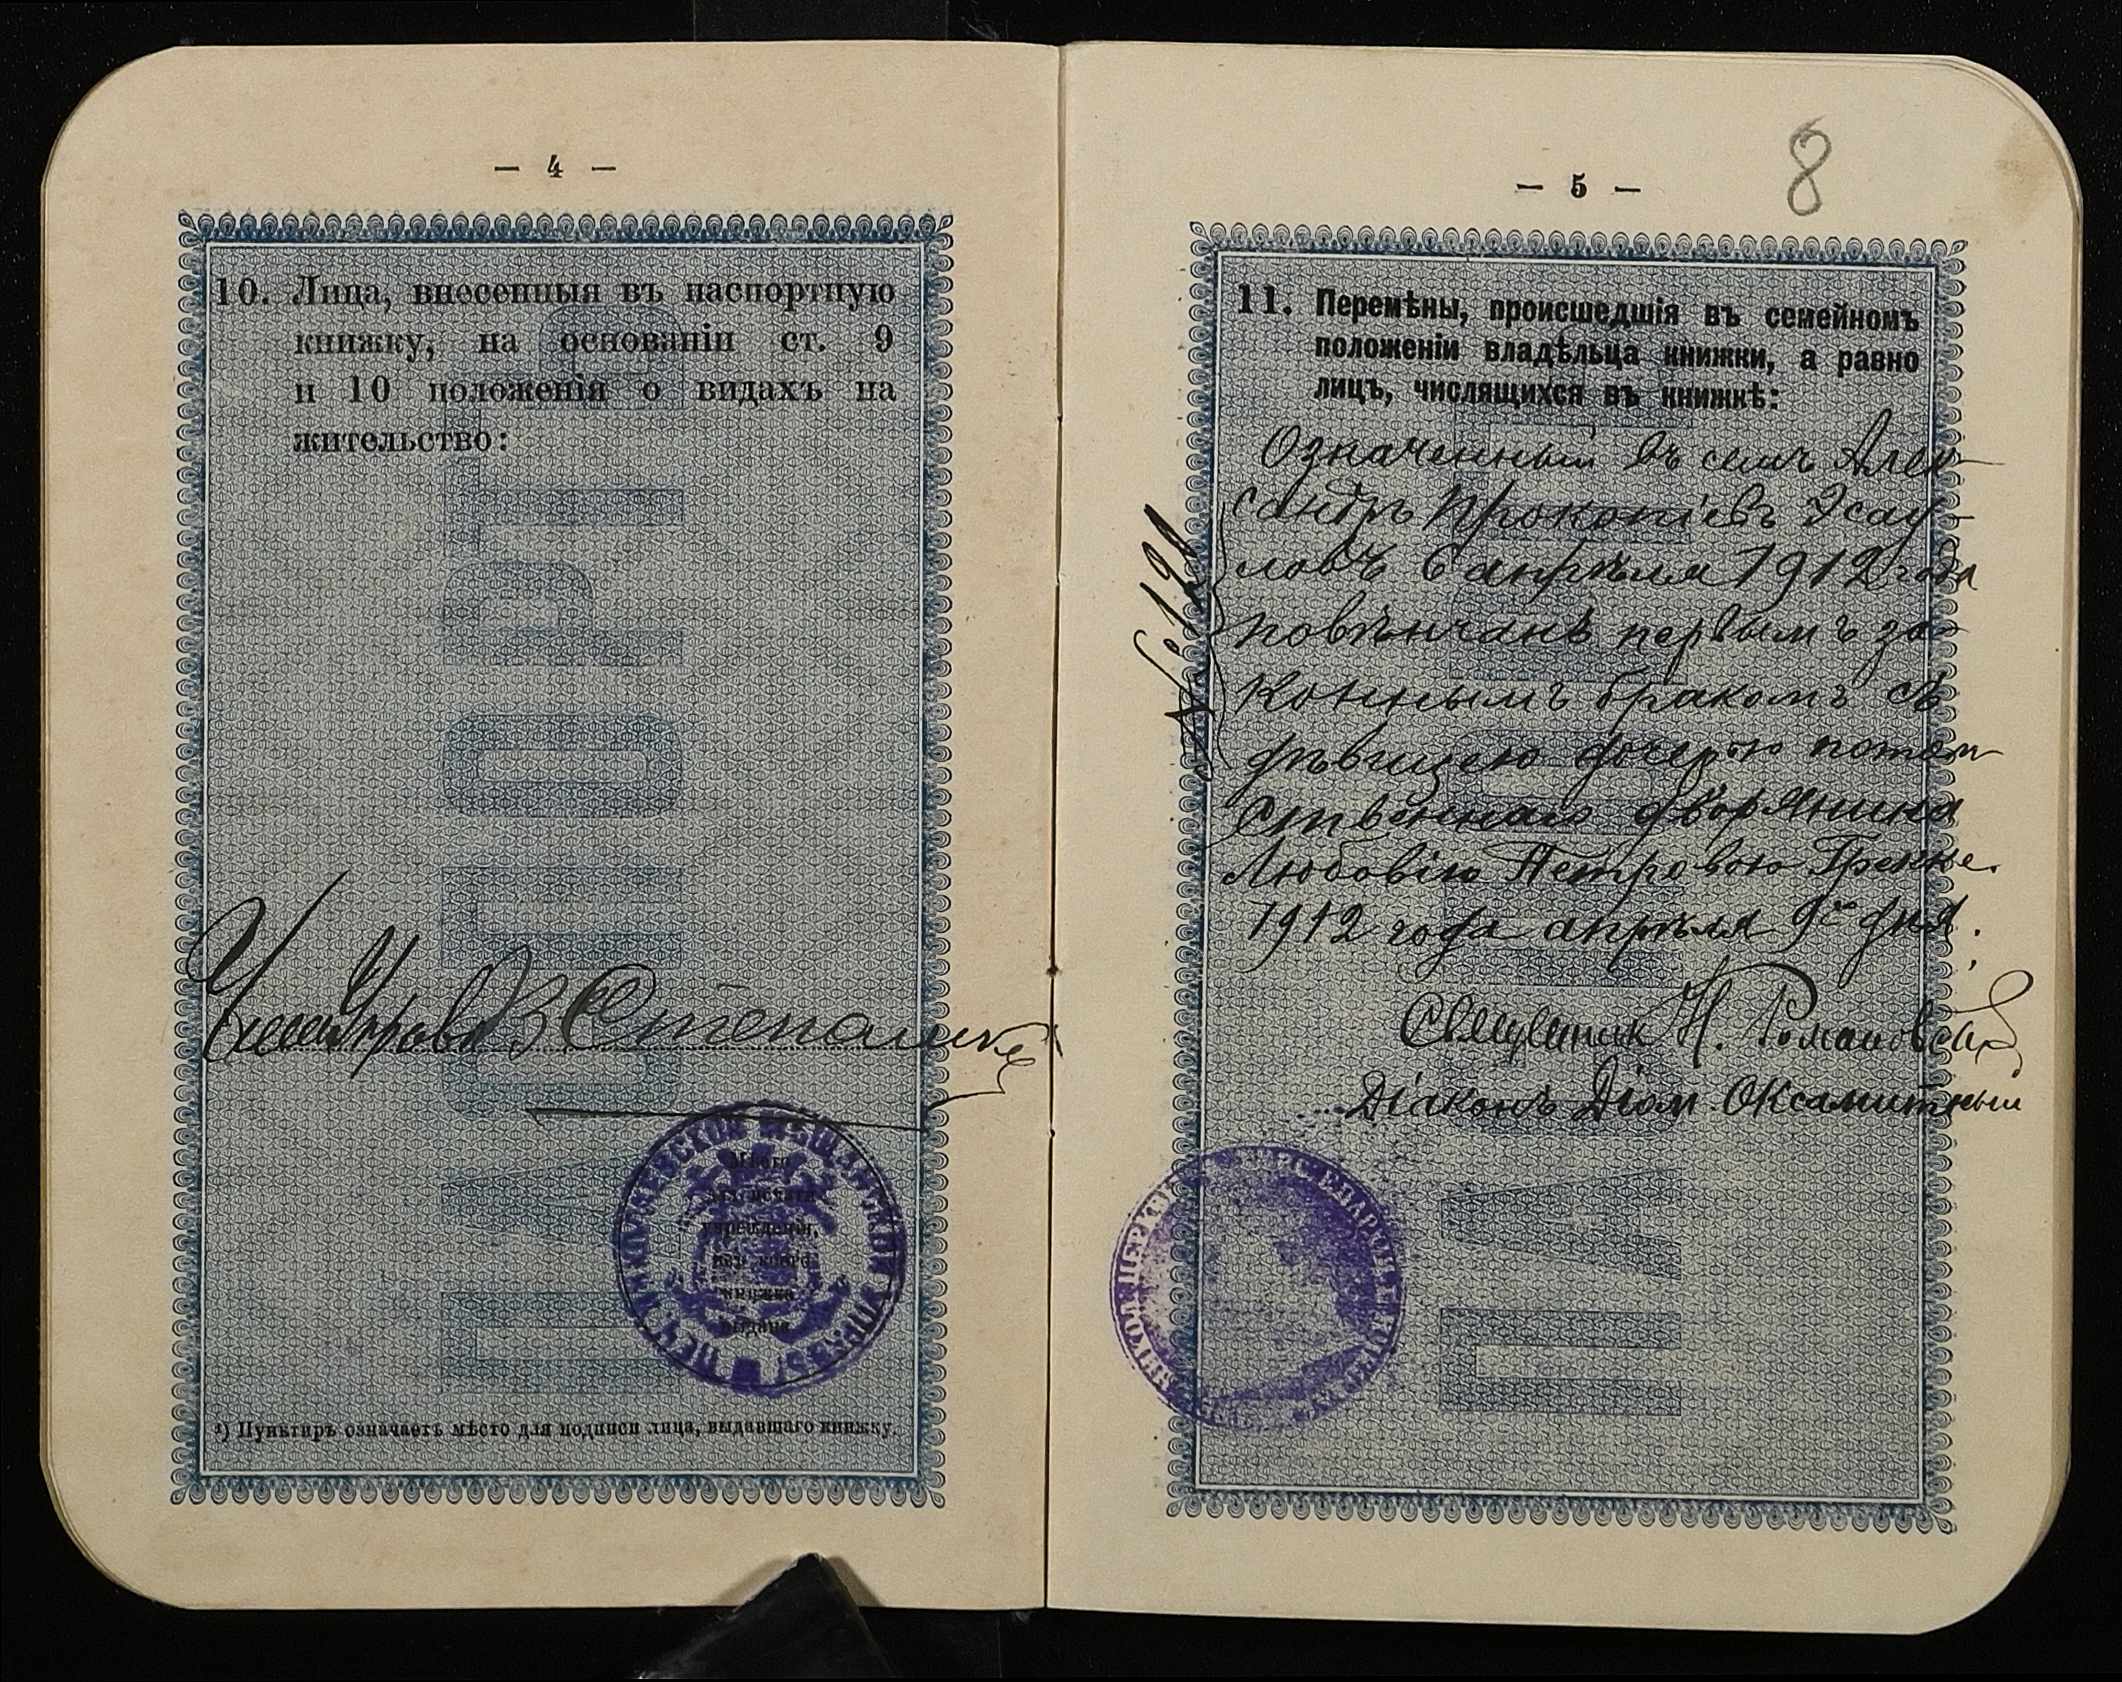 — 4 —
10. Лица, внесенныя въ паспортную
книжку, на основаніи ст. 9
и 10 положенія о видахъ на
жительство:
Управы Степаненко
ПЕЧ. НИКОЛАЕВСКОЙ МѢЩАНСКОЙ УПРАВЫ
Мѣсто
для печати
учрежденія,
изъ коего
книжка
выдана.
¹) Пунктиръ означаетъ мѣсто для подписи лица, выдавшаго книжку.
ПАСПОРТЪ
— 5 —
8
11. Перемѣны, происшедшія въ семейномъ
положеніи владѣльца книжки, а равно
лицъ, числящихся въ книжкѣ:
Означенный въ семъ Алек-
сандръ Прокопіевъ Эсау-
ловъ 6 апрѣля 1912 года
повѣнчанъ первымъ за-
коннымъ бракомъ съ
дѣвицею дочерью потом-
ственнаго дворянина
Любовію Петровою
1912 года апрѣля 9го дня.
Священник Н. Романовскій
Діаконъ Діом. Оксамитный
№ 12
ХЕРС. ЕПАРХІИ ЦЕРКВИ
ПАСПОРТЪ